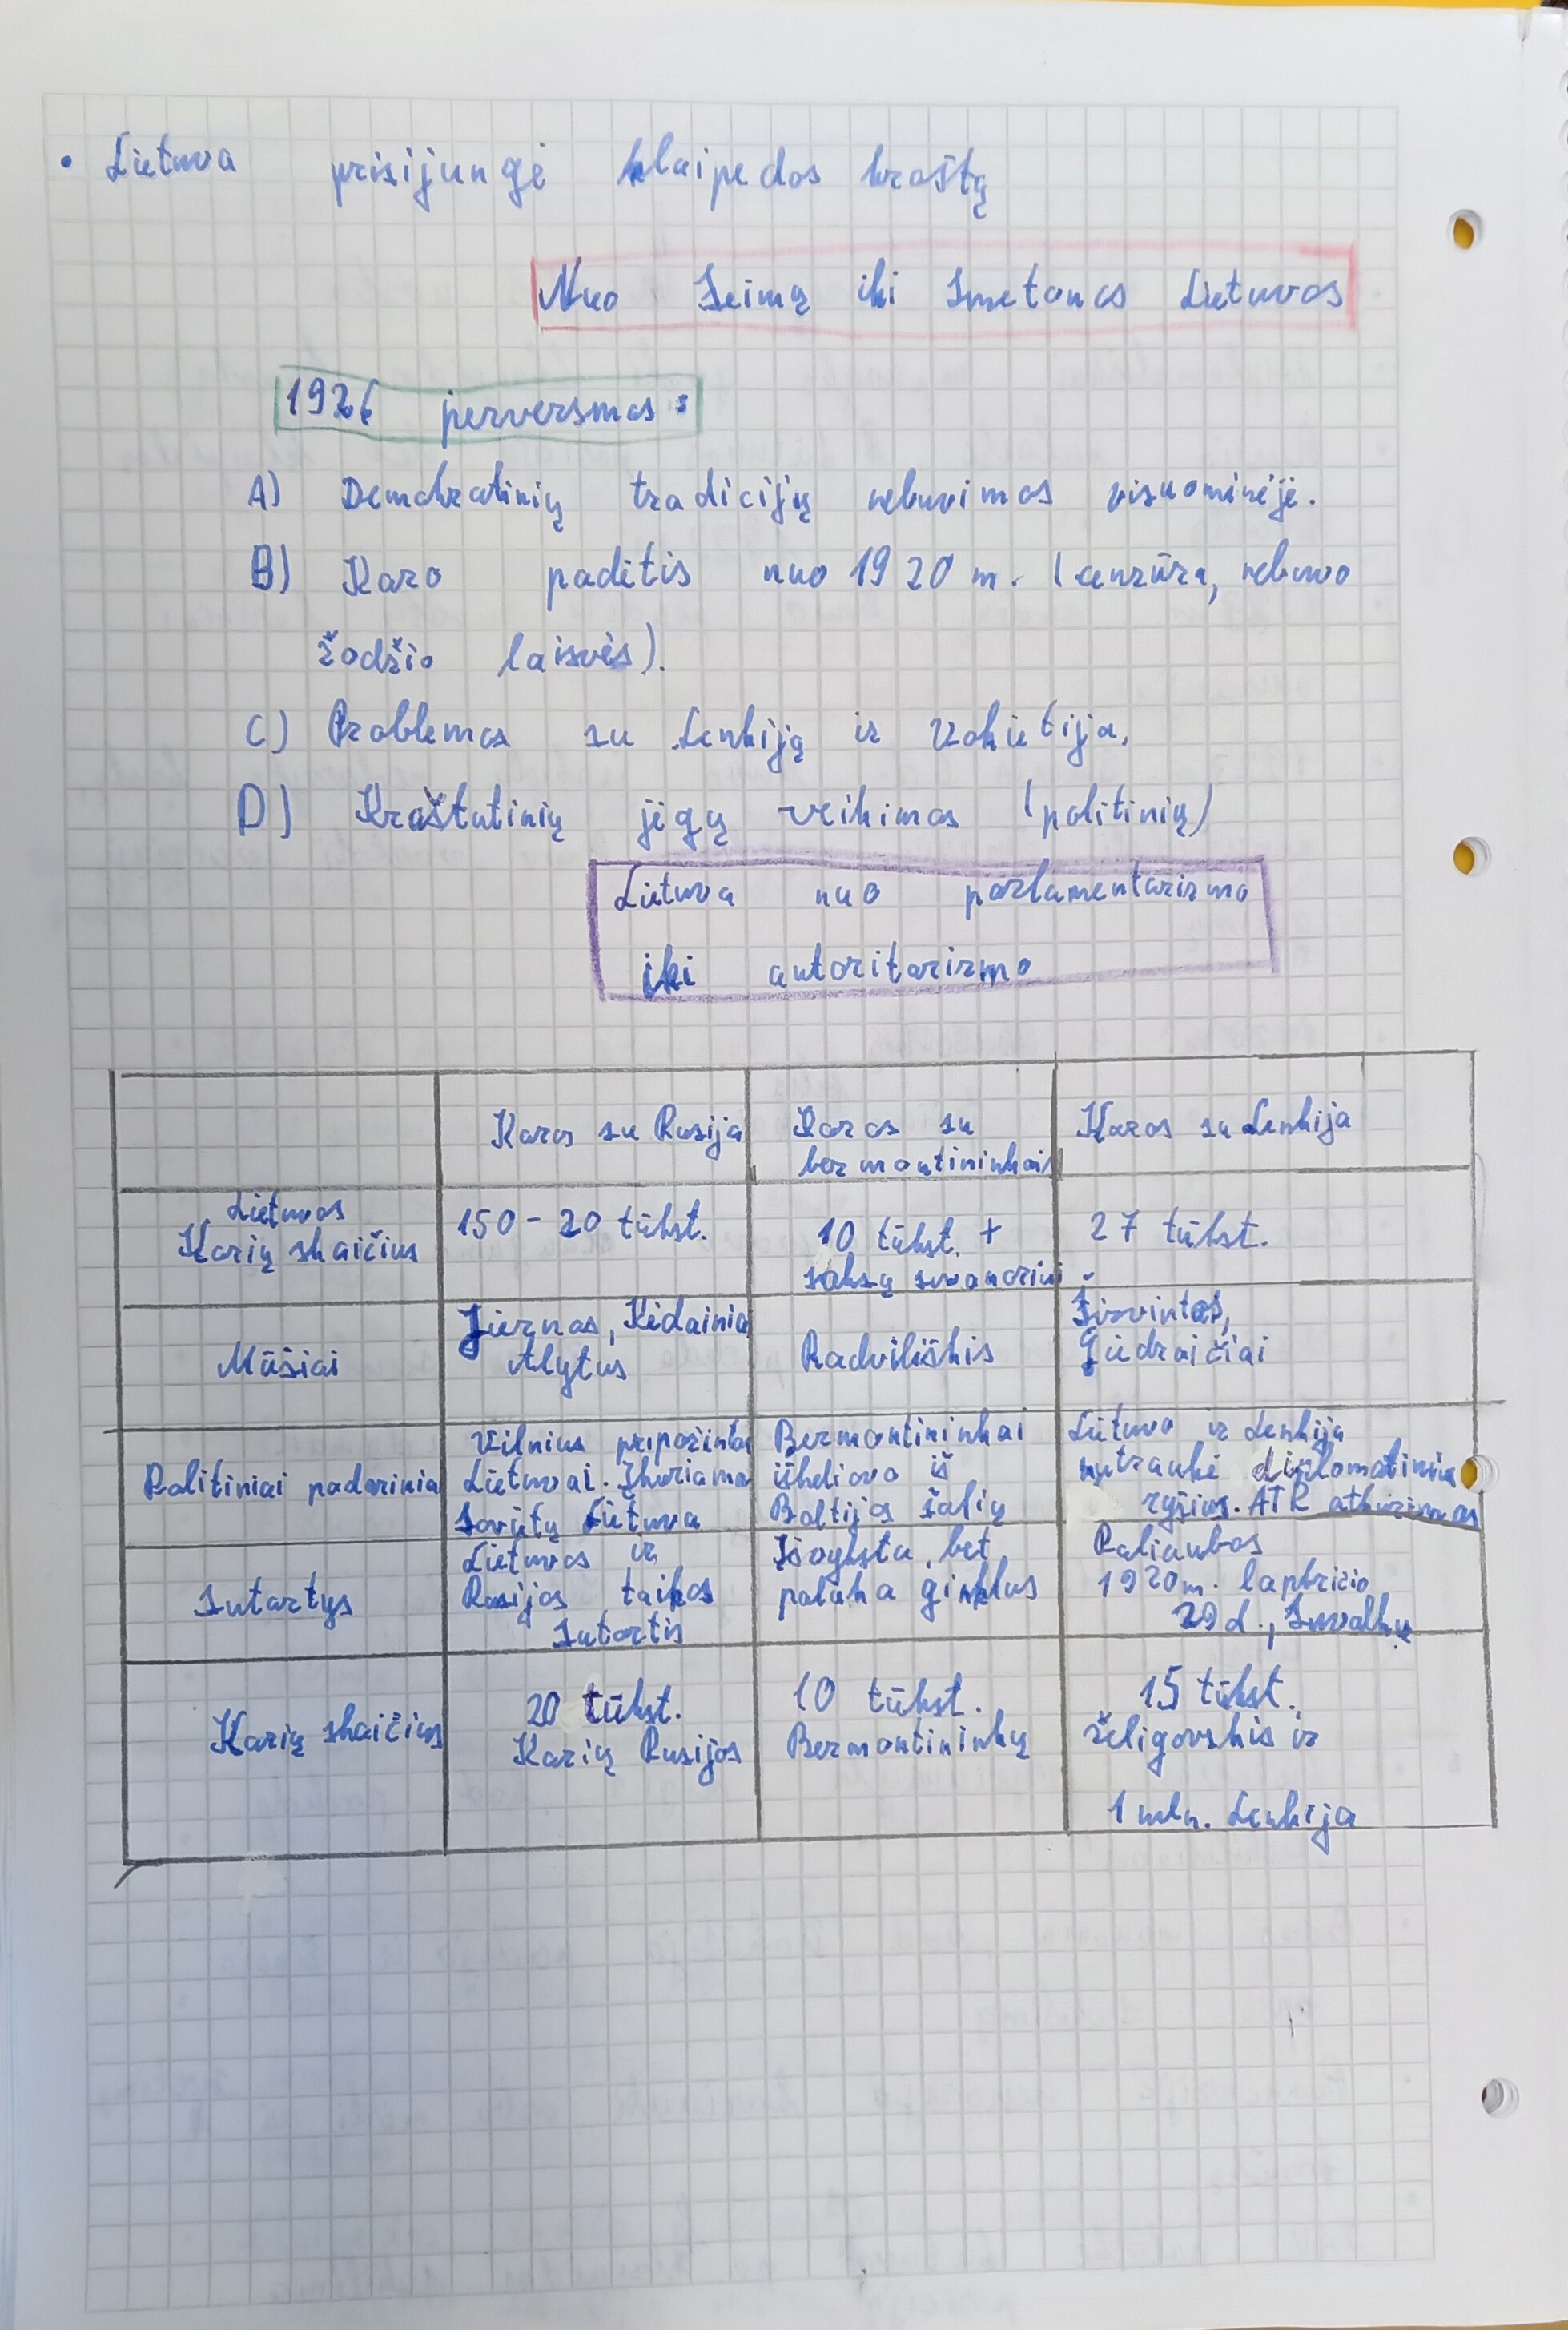 • Lietuva prisijungė Klaipedos kraštą
Nuo Seimų iki Smetonos Lietuvos
1926 perversmas:
A) Demokratinių tradicijų nebuvimas visuominėje.
B) Karo padėtis nuo 1920 m. (cenzūra, nebuvo
žodžio laisvės).
C) Problemos su Lenkiją ir Vokietija.
D) Kraštutinių jėgų veikimas (politinių)
Lietuva nuo parlamentarizmo
iki autoritarizmo
Karas su Rusija
Karas su
bermontininkais
Karas su Lenkija
Lietuvos
Karių skaičius
150-20 tūkst.
10 tūkst. +
saksų savanoriai
27 tūkst.
Mūšiai
Jiernas, Kėdainiai
Alytus
Radviliškis
Širvintos,
Giedraičiai
Politiniai padariniai
Vilnius pripažintas
Lietuvai. Įkuriama
Sovietų Lietuva
Bermontininkai
iškeliavo iš
Baltijos šalių
Lietuva ir Lenkija
nutraukė diplomatinius
ryšius. ATR atkūrimas
Sutartys
Lietuvos ir
Rusijos taikos
Sutartis
Išvyksta, bet
palieka ginklus
Paliaubos
1920m. lapkričio
29d., Suvalkų
Karių skaičius
20 tūkst.
Karių Rusijos
10 tūkst.
Bermontininkų
15 tūkst.
Želigovskis ir
1 mln. Lenkija